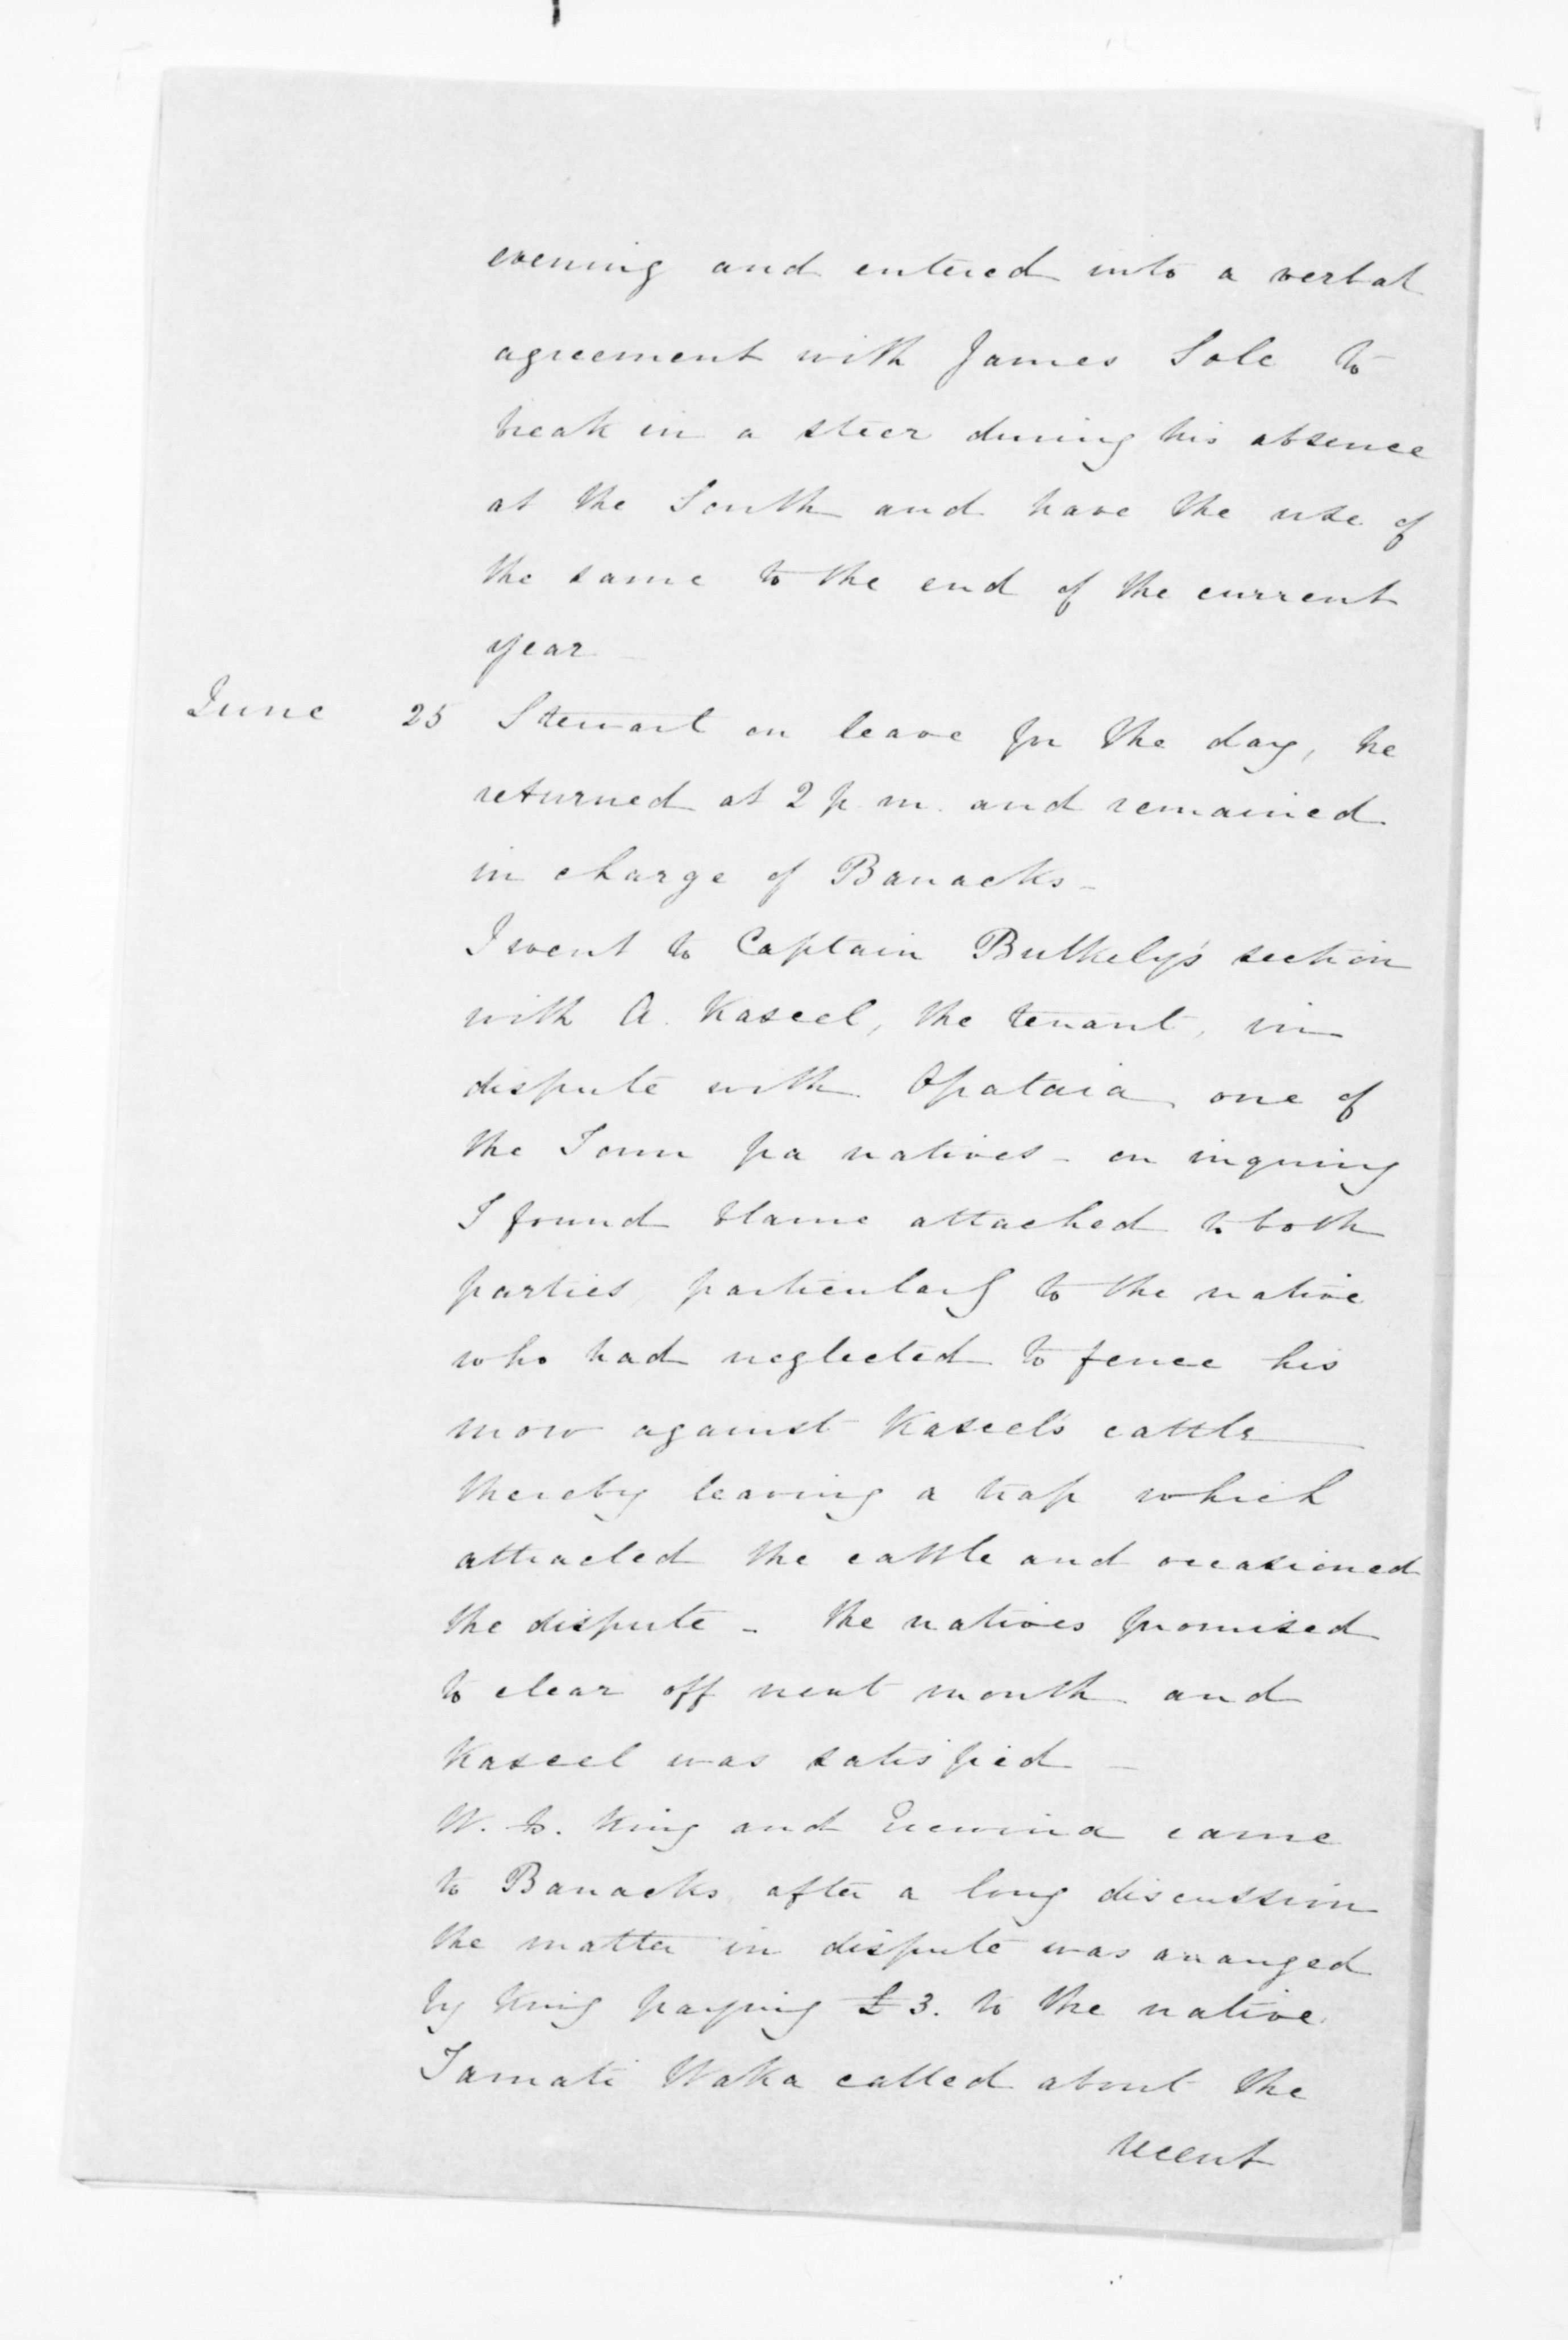 evening and entered into a verbal
agreement with James Sole to
break in a steer during his absence
at the South and have the use of
the same to the end of the current
year -
June 25 Stewart on leave for the day, he
returned at 2 p.m. and remained
in charge of Barracks -
I went to Captain Bulkely's section
with A. Kaseel, the tenant, in
dispute with Apataia one of
the Town pa natives - on inquiring
I found blame attached to both
parties, particularly to the native
who had neglected to fence his
mow against Kaseel's cattle
thereby leaving a trap which
attracted the cattle and occasioned
the dispute - the natives promised
to clear off next month and
Kaseel was satisfied -
W. King and came
to Barracks, after a long discussion
the matter in dispute was arranged
by King paying £3. to the native.
Tamati Waka called about the
recent